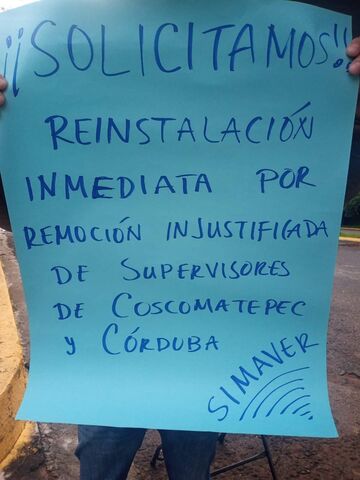 ¡¡SOLICITAMOS!!
REINSTALACIÓN
INMEDIATA POR
REMOCIÓN INJUSTIFICADA
DE SUPERVISORES
DE COSCOMATEPEC
Y CÓRDUBA
SIMAVER